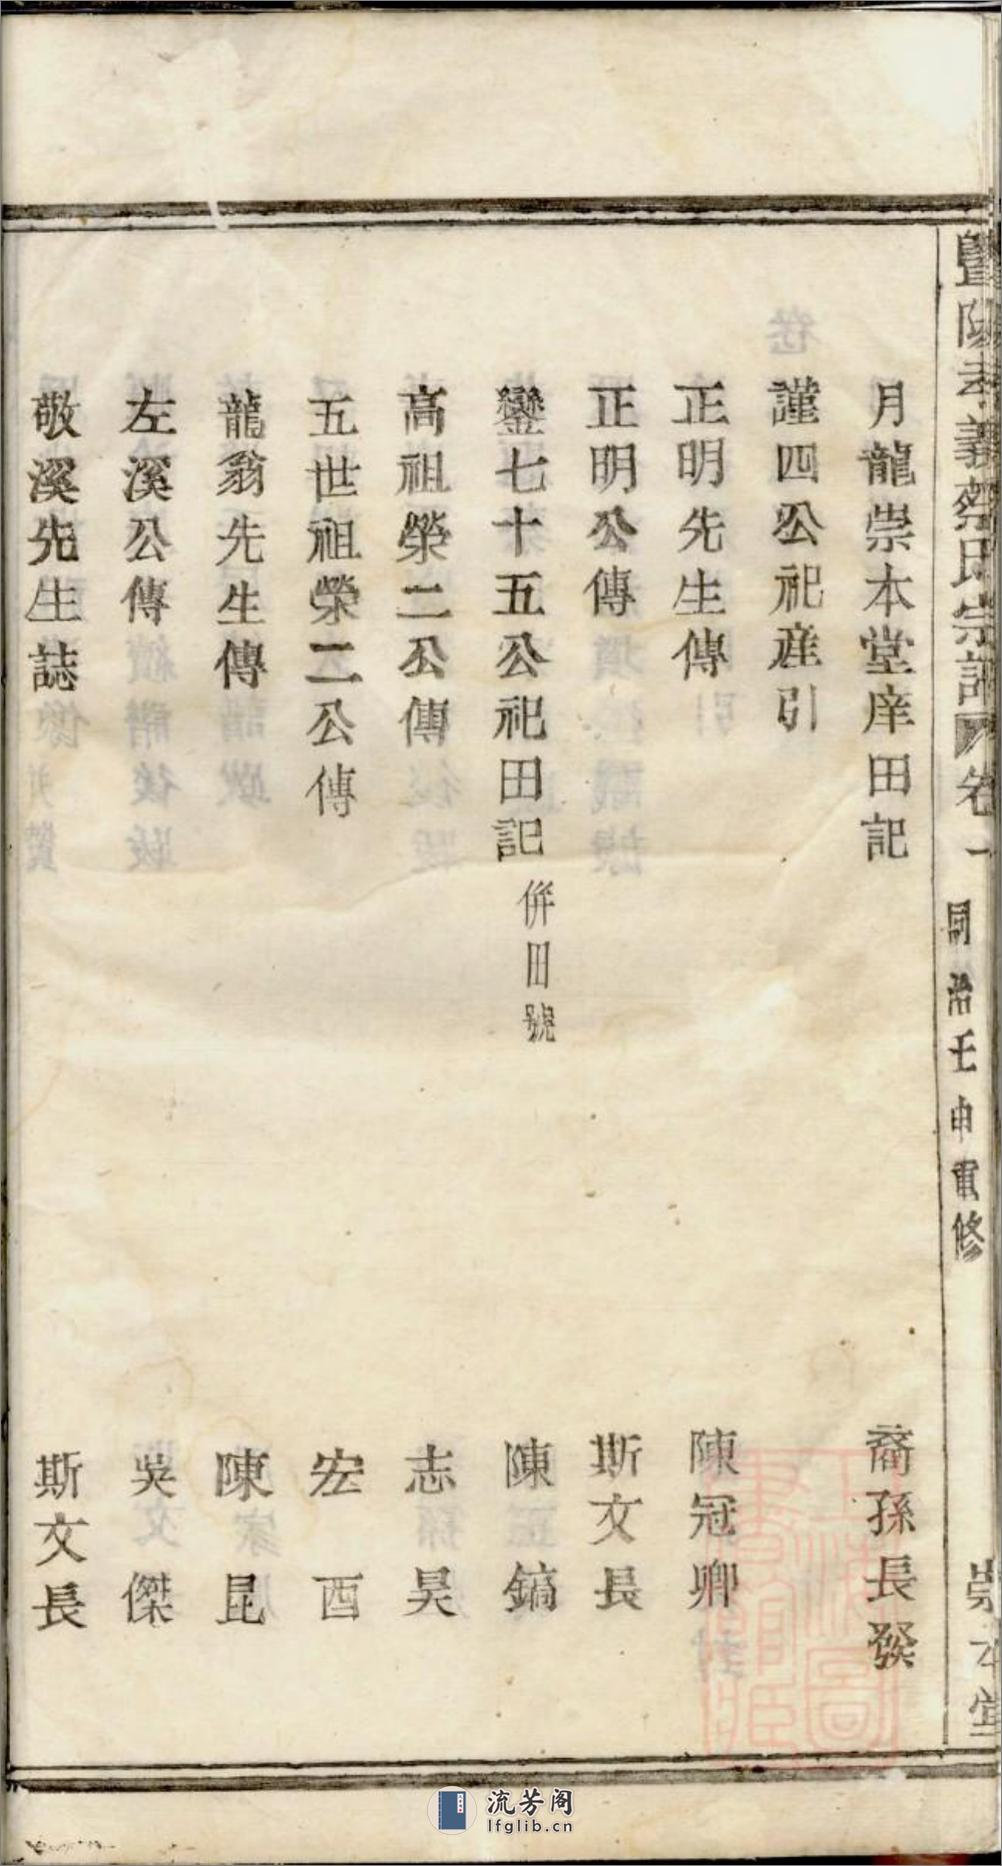 暨陽孝義蔡氏宗譜 卷一 同治壬申重修 崇本堂
月龍崇本堂庠田記 裔孫長發
謹四公祀產引
正明先生傳 陳冠卿
正明公傳 斯文長
鑾七十五公祀田記 併田號 陳鎬
高祖榮二公傳 志昊
五世祖榮二公傳 宏酉
龍翁先生傳 陳昆
左溪公傳 吳文傑
敬溪先生誌 斯文長
流芳阁
lfglib.cn